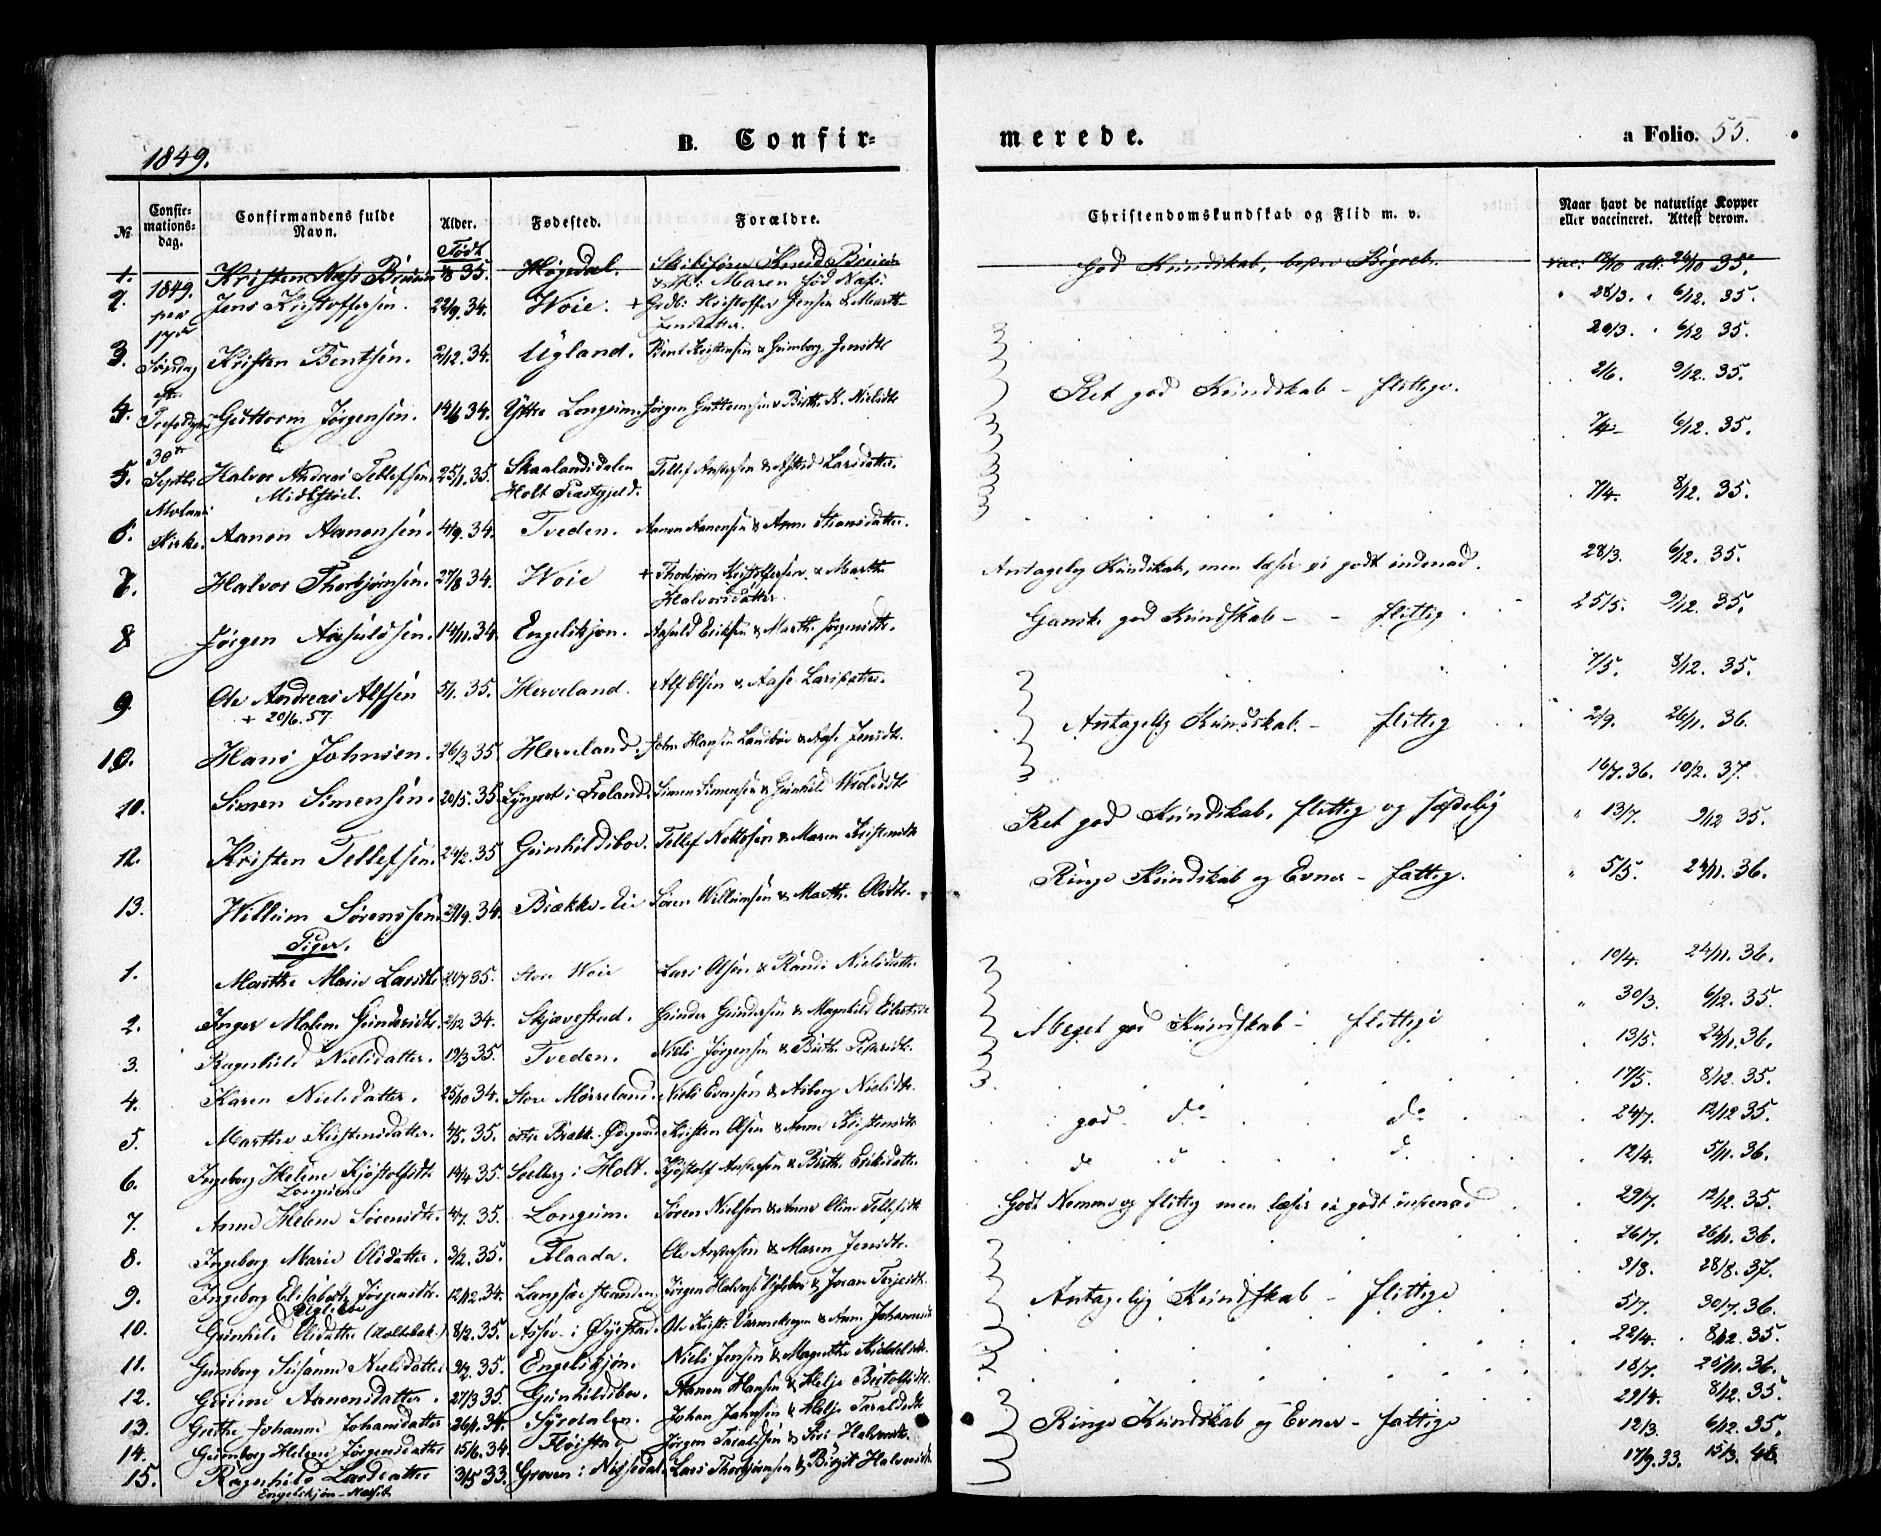 1849.
B. Confir=
merede.
a Folio. 55.
№
Confir=
mations=
dag.
Confirmandens fulde
Navn.
Alder.
Født
Fødested.
Forældre.
Christendomskundskab og Flid m. v.
Naar havt de naturlige Kopper
eller vaccineret. Attest derom.
1.
2. 1849. Jens Kristoffersen. 22/9. 34. Woie. + Gdb: Kristoffer Jensen & Marthe
Jensdatter. 28/3. 6/12. 35.
17de
3. Søndag Kristen Bentsen. 2/12. 34. Ugland. Bent Kristensen & Gunborg Jensdtr 20/3. 6/12 35.
Ret god Kundskab – flittige. 2/6. 9/12. 35.
4. Guttorm Jørgensen. 14/6 34. Yttre Longum. Jørgen Guttormsen & Birthe K. Nielsdtr
30te 7/4 6/12. 35.
5. Septbr Halvor Andreas Tellefsen. 25/1. 35. Skaalandsdalen Tellef Andersen & Astrid Larsdatter.
Midbstøel. Holt Præstgjeld. 7/4. 8/12. 35.
Molans
6. Kirke. Aanon Aanonsen. 4/9. 34. Tveden. Aanon Aanonsen & Anne Hansdatter.
Antagelig Kundskab, men læser ei godt indenad. 28/3. 6/12. 35.
7. Halvor Thorbjørnsen. 27/8 34. Woie + Thorbjørn Kristoffersen & Marthe
Halvorsdatter.
Ganske god Kundskab – – flittig 25/5. 9/12. 35.
8 Jørgen Aasulsen. 14/11. 34. Engelskjøn. Aasuld Eriksen & Marthe Jørgensdtr.
7/5. 8/12. 35.
9. Ole Andreas Alfsen 5/1. 35. Herveland. Alf Olsen & Aase Larsdatter.
+ 20/6. 57
Antagelig Kundskab. – flittig 2/9. 26/11. 36.
10. Hans Johnsen. 26/3 35. Herveland. John Hansen Landbøe & Aase Jensdtr.
16/7. 36. 10/2. 37.
10. Simen Simensen. 20/5. 35. Lyngrot i Froland. Simen Simensen & Gunhild
Ret god Kundskab, flittig og sædelig 13/7. 9/12 35.
12. Kristen Tellefsen. 24/2. 35 Gunhildsboe. Tellef Neltesen & Maren Kristensdtr
Ringe Kundskab og Evner – fattig. 5/5. 24/11. 36.
13. Willum Sørenssen 29/9. 34. Brække-Eie Søren Willumsen & Marthe Olsdtr.
Piger.
1. Marthe Marie Larsdtr 35. Store Woie Lars Olsen & Randi Nielsdatter. 10/4. 24/11. 36.
2. Inger Malene Gundersdtr. 2/12 34. Skjævestad. Gunder Gundersen & Magnhild 30/3. 6/12. 35.
Meget god Kundskab – flittige
3. Ragnhild Nielsdatter. 19/3 35. Tveden. Niels Jørgensen & Birthe Pedersdtr. 13/5. 24/11. 36.
4. Karen Nielsdatter. 25/10 34. Store Mørreland. Niels Evensen & Asborg Nielsdtr. 17/5. 8/12. 35.
god do do
5. Marthe Kristensdatter. 4/5. 35. østre Brække. Øiestad Kristen Olsen & Anne Kristensdtr 24/7. 12/12 35.
6. Ingeborg Helene Kjøstolfsdtr 13/4 35. Solberg i Holt. Kjøstolf Andersen & Birthe Eriksdatter. d d d 12/4. 5/11. 36.
Longum
7. Anne Helene Sørensdtr. 4/7. 35. Longum. Søren Nielsen & Anne Oline Tellefsdtr Godt Nemme og flittig men læser ei godt indenad 29/7. 12/12. 35.
8. Ingeborg Marie Olsdatter. 3/2. 35. Flaada. Ole Andersen & Maren Jensdtr. 26/7. 26/11. 36.
9. Ingeborg Elisabeth Jørgensdtr. 12/12. 34. Langsæ stranden. Jørgen Halvors: Ugleboe & Joran Terjesdtr. 3/8. 28/8. 37.
Ugleboe
Antagelig Kundskab – flittige
10. Gunhild Olsdatter (Holtebak.) 8/2. 35. Assev i Øyestad. Ole Krist: & Anne Johannesd 5/7. 30/7. 36.
11. Gunborg Susanne Nielsdatter 9/2. 35. Engelskjøn. Niels Jensen & Magnethe 22/4. 8/12. 35.
12. Gurine Aanonsdatter. 27/3 35. Gunhildsboe. Aanon Hansen & Helje 18/7. 25/11. 36.
13. Grethe Johanne Johansdatter 26/1. 34. Syvdalen. Johan Jahnsen & Helje Taraldsdtr 29/4. 8/12. 35.
Ringe Kundskab og Evner – fattige
14. Gunborg Helene Jørgensdatter 15/6. 34. Fløistad Jørgen Taraldsen & Siri Halvorsdtr. 12/3. 6/12. 35.
15. Ragnhild Larsdatter 3/5 33. Groven i Nissedal. Lars Thorbjørnsen & Birgit Halvorsdtr. 17/9. 33. 15/3. 48.
Engelskjøn –